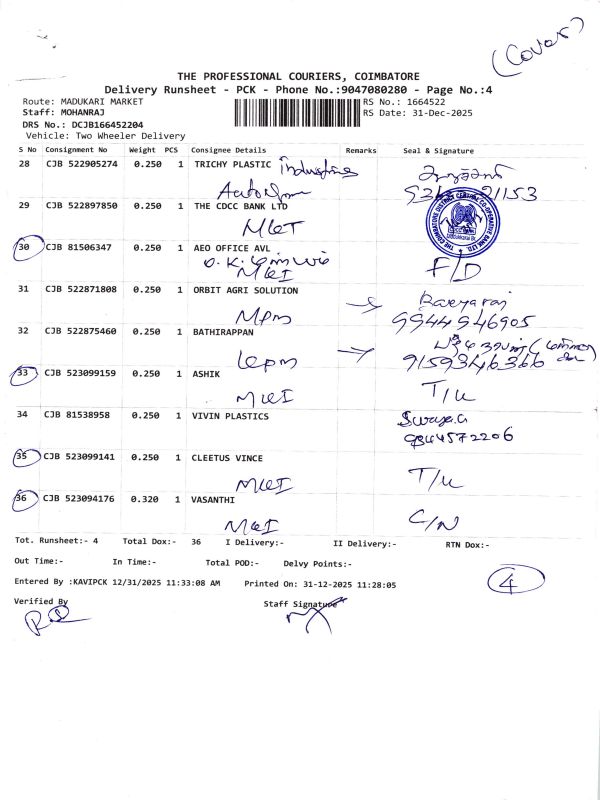 (Cover)
THE PROFESSIONAL COURIERS, COIMBATORE
Delivery Runsheet - PCK - Phone No.:9047080280 - Page No.:4
Route: MADUKARI MARKET
RS No.: 1664522
Staff: MOHANRAJ
RS Date: 31-Dec-2025
DRS No.: DCJB166452204
Vehicle: Two Wheeler Delivery
S No Consignment No Weight PCS Consignee Details Remarks Seal & Signature
28 CJB 522905274 0.250 1 TRICHY PLASTIC Industries
29 CJB 522897850 0.250 1 THE CDCC BANK LTD
30 CJB 81506347 0.250 1 AEO OFFICE AVL
F/D
31 CJB 522871808 0.250 1 ORBIT AGRI SOLUTION
9944946905
32 CJB 522875460 0.250 1 BATHIRAPPAN
9159346366
33 CJB 523099159 0.250 1 ASHIK
T/L
34 CJB 81538958 0.250 1 VIVIN PLASTICS
9344572206
35 CJB 523099141 0.250 1 CLEETUS VINCE
T/L
36 CJB 523094176 0.320 1 VASANTHI
C/N
Tot. Runsheet:- 4 Total Dox:- 36 I Delivery:- II Delivery:- RTN Dox:-
Out Time:- In Time:- Total POD:- Delvy Points:-
Entered By :KAVIPCK 12/31/2025 11:33:08 AM Printed On: 31-12-2025 11:28:05
4
Verified By
Staff Signature